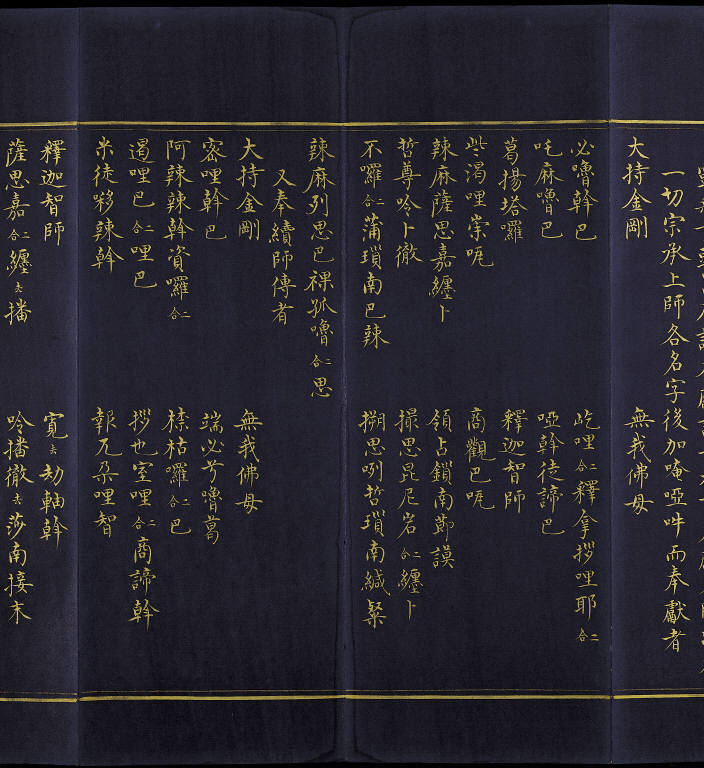 一切宗承上師各名字後加唵啞吽而奉獻者
大持金剛 無我佛母
必嚕斡巴 屹哩二合釋拿拶哩耶二合
吒麻嚕巴 啞斡徒諦巴
葛揚塔囉 釋迦智師
渴哩崇 商觀巴
辣麻薩思嘉纏卜 領占鎖南節謨
哲尊吟卜徹 撮思昆尼岩二合纏卜
不囉二合蒲瑣南巴辣 搠思咧哲瑣南緘粲
辣麻列思巴裸孤嚕二合思
又奉續師傳者
大持金剛 無我佛母
密哩斡巴 端必兮嚕葛
阿辣辣斡資囉二合 樣枯囉二合巴
遏哩巴二合哩巴 拶也室哩二合商諦斡
米徒哆辣斡 報兀朶哩智
釋迦智師 寬去刼軸斡
薩思嘉二合纏去播 吟播徹去莎南接末